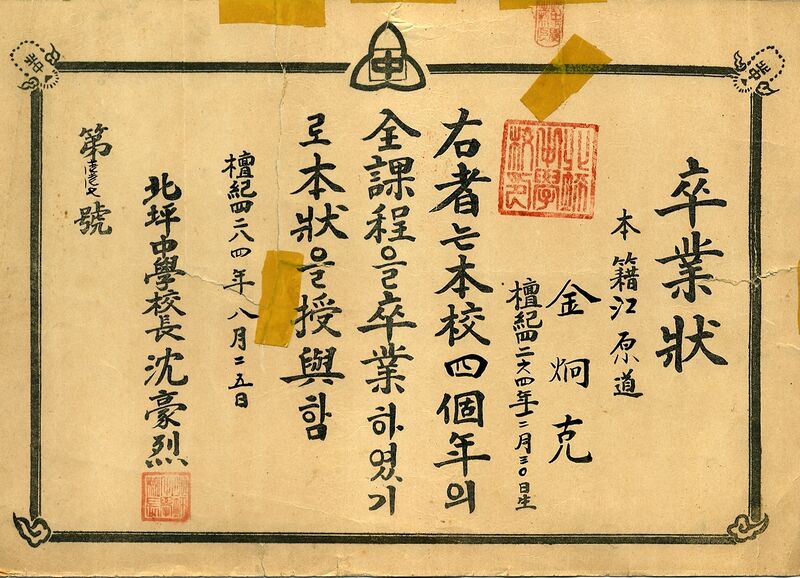 卒業狀
本籍江原道
金炯克
檀紀四二六四年十二月三〇日生
右者는本校四個年의
全課程을卒業하였기
로本狀을授與함
檀紀四二八四年八月二五日
北坪中學校長沈豪烈
第 號
中